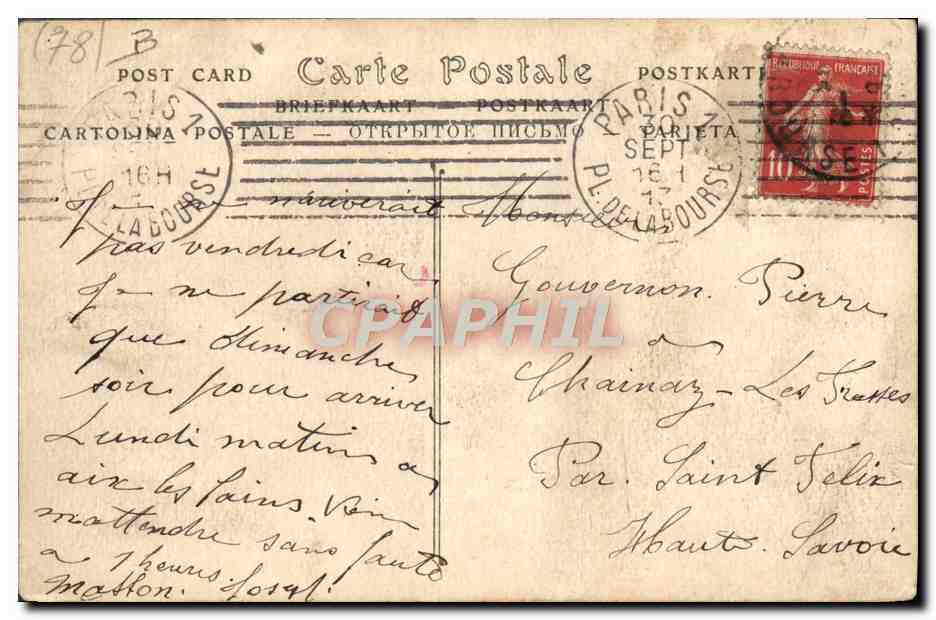 (78) B
Carte Postale
POST CARD
POSTKARTE
BRIEFKAART POSTKAART
CARTOLINA POSTALE — ОТКРЫТОЕ ПИСЬМО TARJETA
PARIS 1
16H
PL. DE LA BOURSE
PARIS 1
30
SEPT
16H
13
PL. DE LA BOURSE
REPUBLIQUE FRANÇAISE
10
POSTES
Je ne n'auverait
pas vendredi car
Je ne partirait
que dimanche
soir pour arriver
Lundi matin a
aix les Bains vien
mattendre sans faute
a 7 heures.
Masson. Josep.
Monsieur
Gouvernon. Pierre
a
Chainaz-Les Frasses
Par. Saint Felix
Haute. Savoie
CPAPHIL